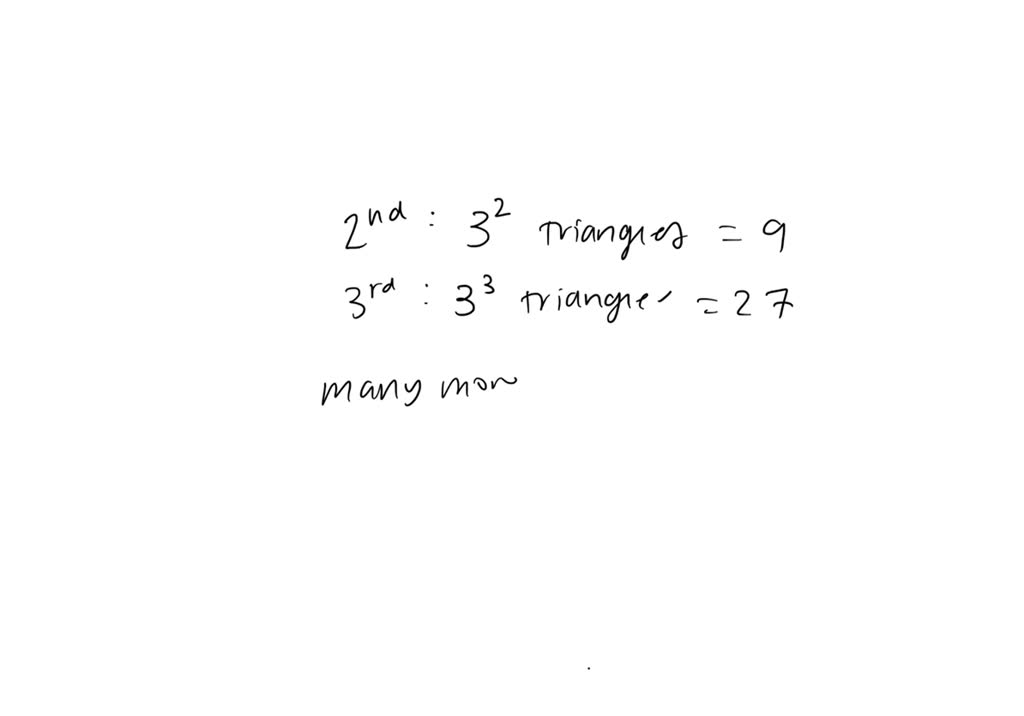 2nd : 3² triangles = 9
3rd : 3³ triangles = 27
many more